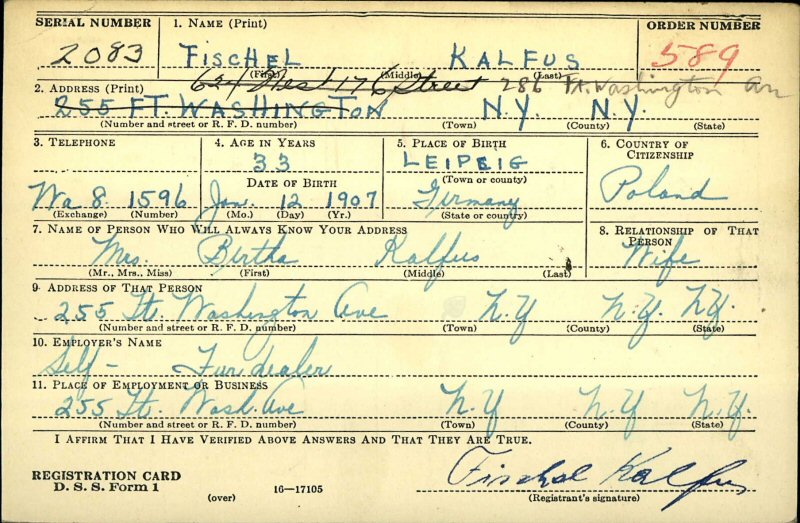 SERIAL NUMBER 1. NAME (Print) ORDER NUMBER
2083 FISCHEL KALFUS 589
(First) (Middle) (Last)
624 West 176 Street 286 Ft. Washington Av
2. ADDRESS (Print)
255 FT. WASHINGTON N.Y. N.Y.
(Number and street or R. F. D. number) (Town) (County) (State)
3. TELEPHONE 4. AGE IN YEARS 5. PLACE OF BIRTH 6. COUNTRY OF CITIZENSHIP
33 LEIPEIG
DATE OF BIRTH (Town or county)
Wa 8 1596 Jan. 12 1907 Germany Poland
(Exchange) (Number) (Mo.) (Day) (Yr.) (State or country)
7. NAME OF PERSON WHO WILL ALWAYS KNOW YOUR ADDRESS 8. RELATIONSHIP OF THAT PERSON
Mrs. Bertha Kalfus Wife
(Mr., Mrs., Miss) (First) (Middle) (Last)
9. ADDRESS OF THAT PERSON
255 Ft. Washington Ave N.Y N.Y. N.Y.
(Number and street or R. F. D. number) (Town) (County) (State)
10. EMPLOYER'S NAME
Self - Fur dealer
11. PLACE OF EMPLOYMENT OR BUSINESS
255 Ft. Wash. Ave N.Y N.Y N.Y.
(Number and street or R. F. D. number) (Town) (County) (State)
I AFFIRM THAT I HAVE VERIFIED ABOVE ANSWERS AND THAT THEY ARE TRUE.
Fischel Kalfus
REGISTRATION CARD
D. S. S. Form 1 (over) 16—17105 (Registrant's signature)